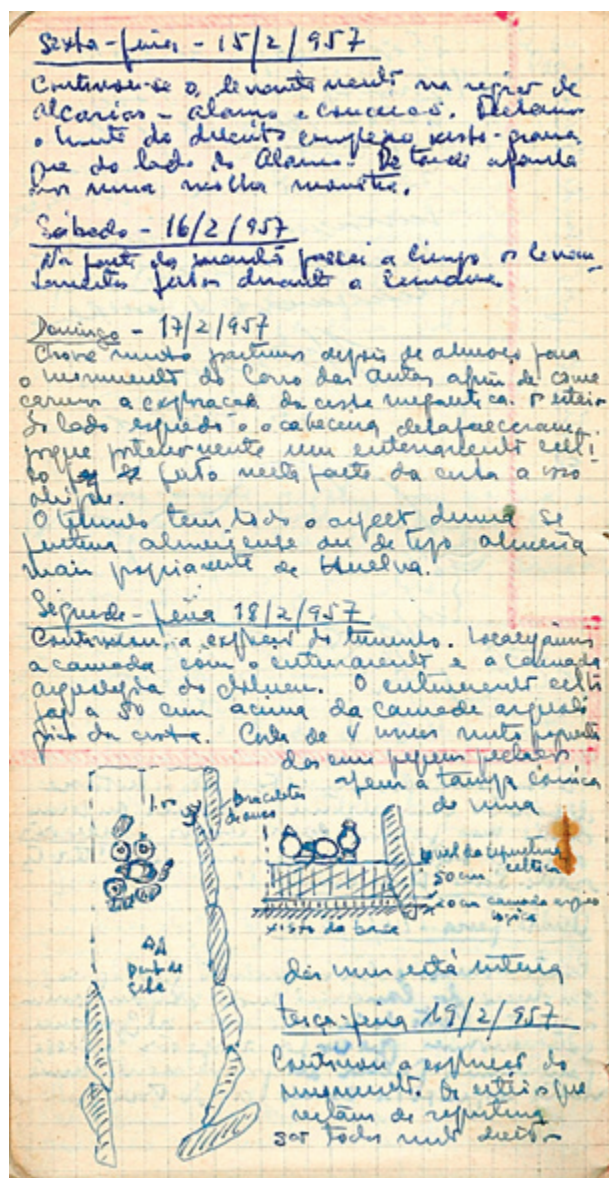 Sexta-feira - 15/2/957
Continuou-se o levantamento na região de
Alcarias - Alamo e Conceição.
o limite do circuito complexo xisto-grauva
que do lado do Alamo. De tarde apanha
mos uma molha monstra.
Sábado - 16/2/957
Na parte da manhã passei a limpo os levan-
tamentos feitos durante a semana.
Domingo - 17/2/957
Chove muito partimos depois de almoço para
o monumento do Cerro das Antas afim de come
çarmos a exploração da cista megalitica. O esteio
do lado esquerdo e o cabeceira desapareceram.
porque posteriormente um enterramento celti
co foi feito nesta parte da cista a isso
obrigou.
O tumulo tem todo o aspecto duma se
pultura almeriense ou de tipo almeria
mais propriamente de Huelva.
Segunda-feira 18/2/957
Continuou a exploração do tumulo. Localizamos
a camada com o enterramento e a camada
arqueologica do dolmen. O enterramento celti
co jaz a 50 cm acima da camada arqueoló
gica da cista. Consta de 4 urnas muito
das em pequenos pedaços
tem a tampa cónica
de uma
1.50
braceletes
de ouro
nivel da sepultura
celtica
50 cm
20 cm camada arqueo
logica
xisto da base
Pont. de
silex
das urnas está inteira
terça-feira 19/2/957
Continuou a exploração do
monumento. Os esteios que
restam da sepultura
são todos muito